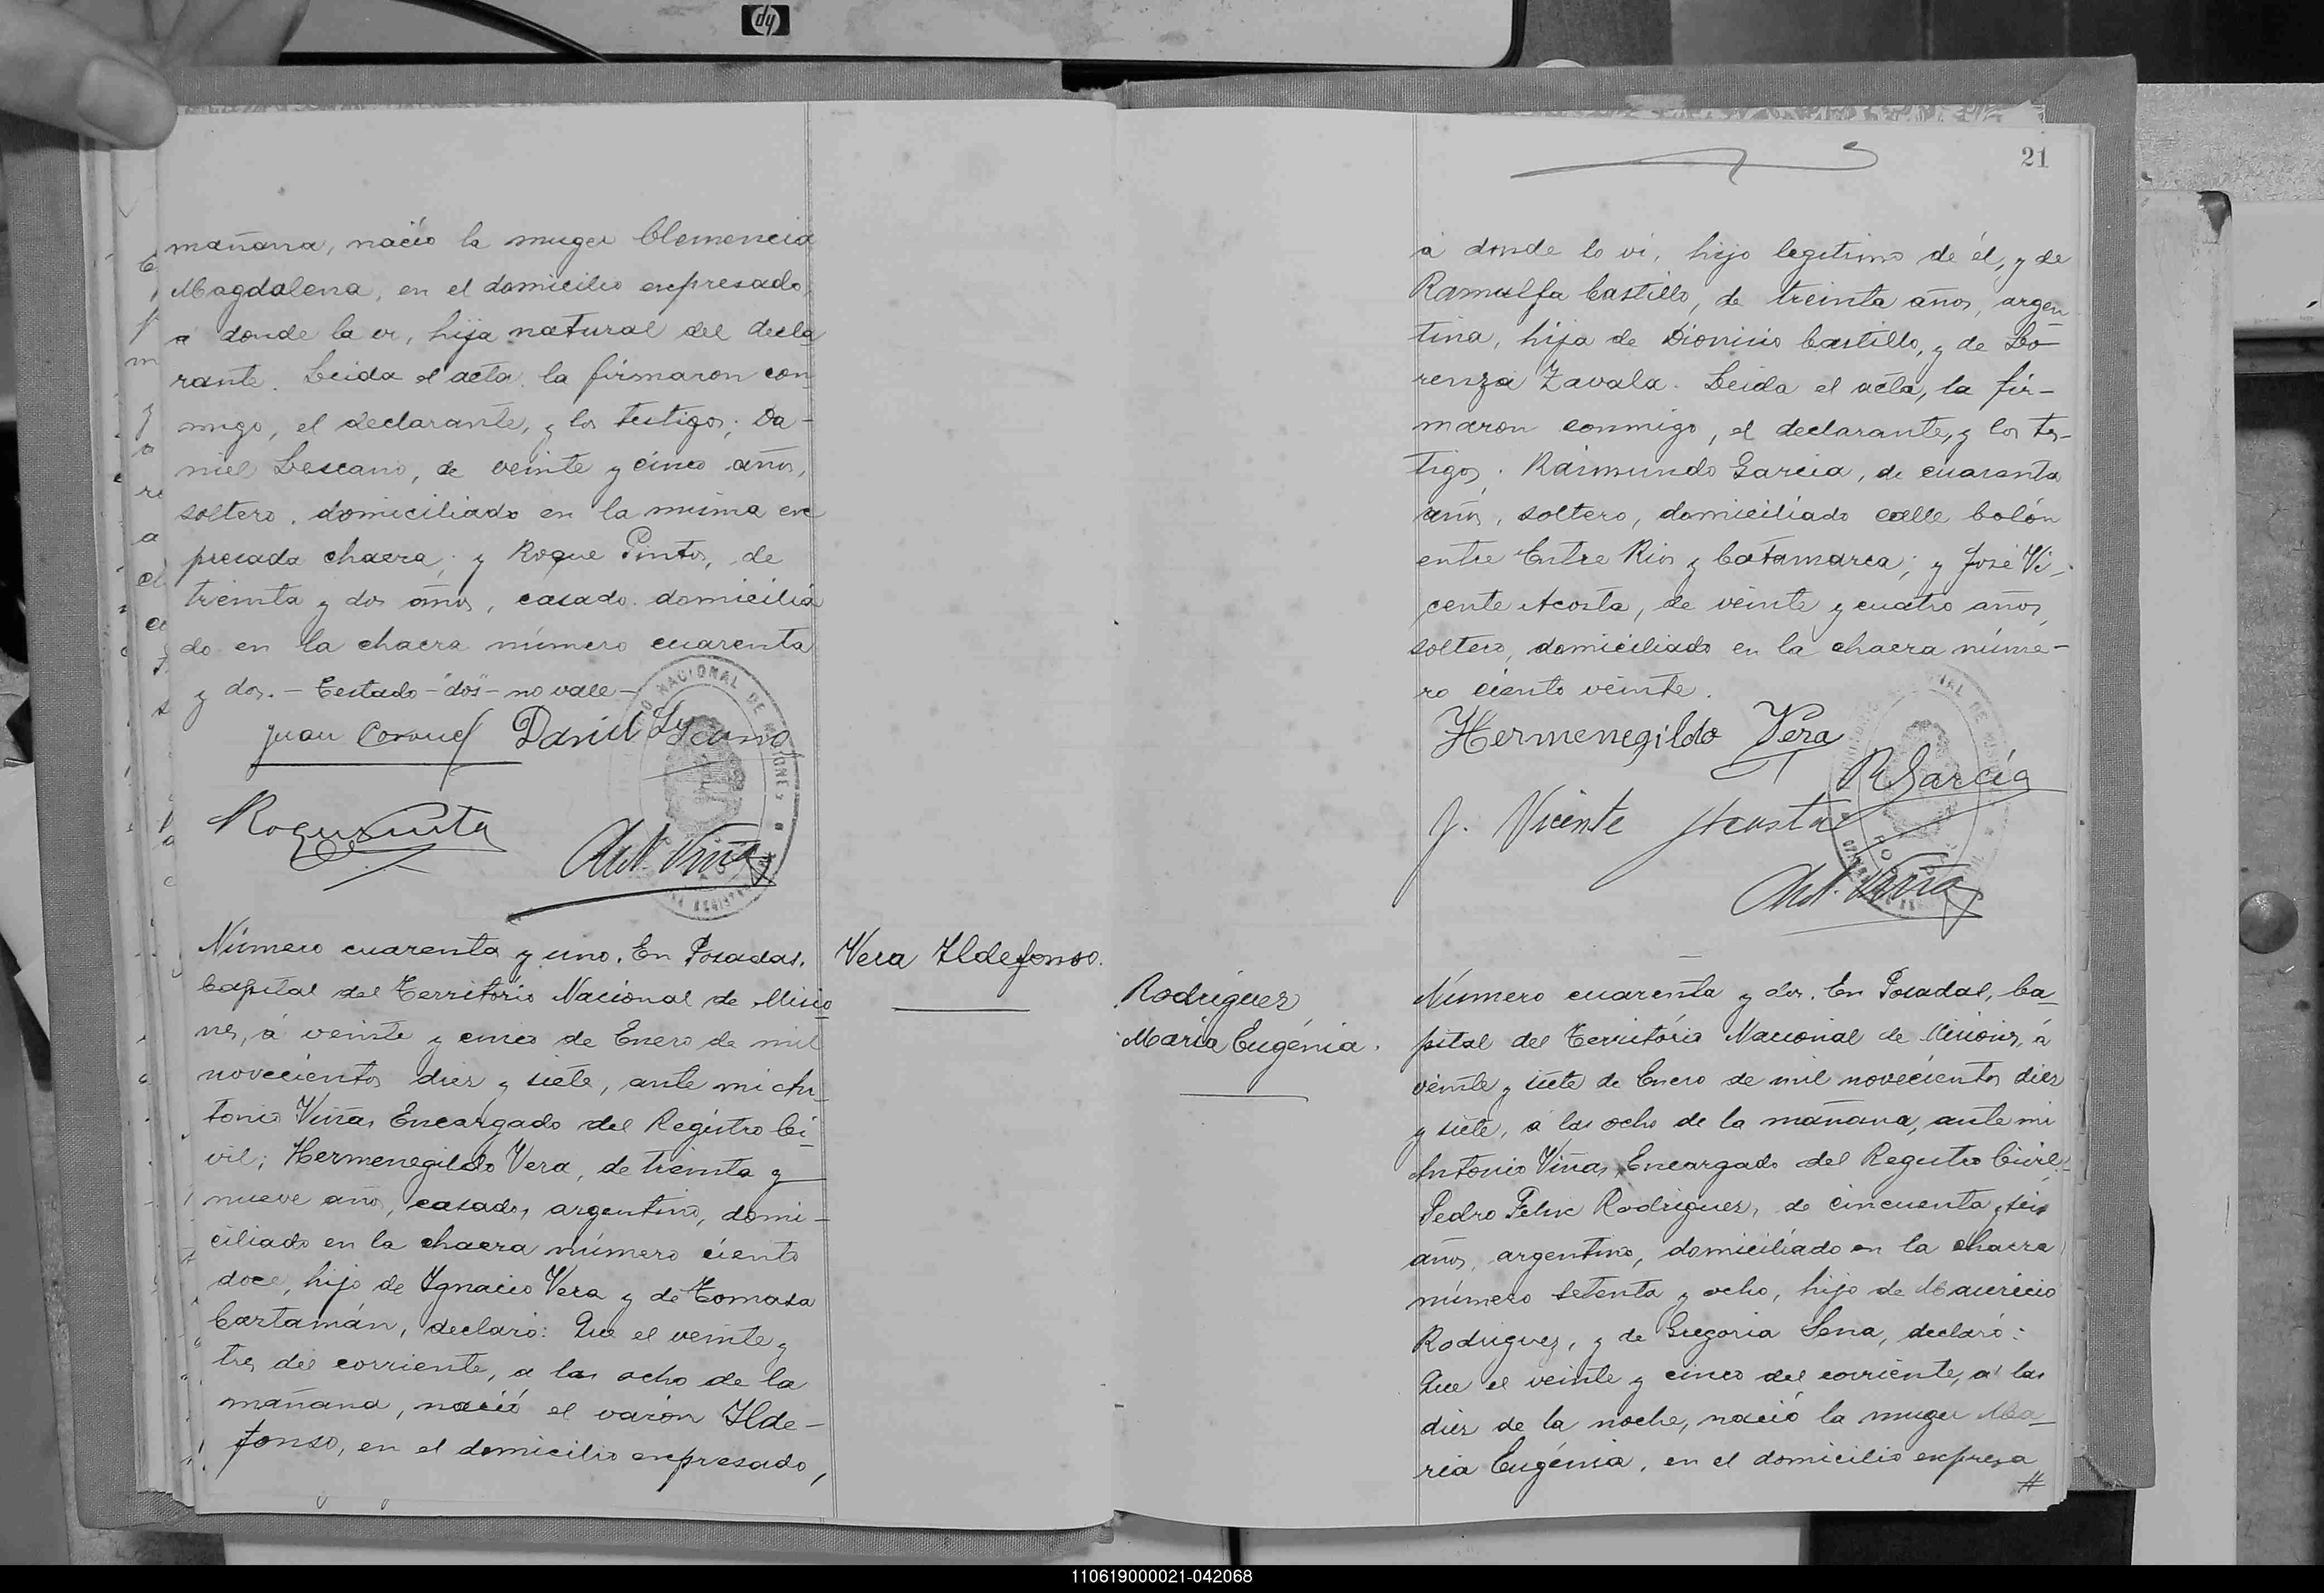 hp
mañana, nació la muger Clemencia
Magdalena, en el domicilio expresado,
á donde la vi, hija natural del decla
rante. Leida el acta, la firmaron con
migo, el declarante, y los testigos; Da-
niel Lescano, de veinte y cinco años,
soltero, domiciliado en la misma ex
presada chacra; y Roque Pintos, de
treinta y dos años, casado, domicilia
do en la chacra número cuarenta
y dos. - Testado - "dos" - no vale -
Juan Coronel Daniel Lescano
Roque Pinto
Ant. Viña
Número cuarenta y uno. En Posadas,
Capital del Território Nacional de Misio
nes, á veinte y cinco de Enero de mil
novecientos diez y siete, ante mi An
tonio Viña, Encargado del Registro Ci-
vil; Hermenegildo Vera, de treinta y
nueve años, casado, argentino, domi-
ciliado en la chacra número ciento
doce, hijo de Ygnacio Vera y de Tomasa
Cartamán, declaró: Que el veinte y
tres del corriente, a las ocho de la
mañana, nació el varón Ylde-
fonso, en el domicilio expresado,
Vera Yldefonso.
21
á donde lo vi, hijo legitimo de él, y de
Ramulfa Castillo, de treinta años, argen
tina, hija de Dionicio Castillo, y de Lo-
renza Zavala. Leida el acta, la fir-
maron conmigo, el declarante, y los tes-
tigos; Raimundo Garcia, de cuarenta
años, soltero, domiciliado calle Colón
entre Entre Rios y Catamarca; y José Vi-
cente Acosta, de veinte y cuatro años,
soltero, domiciliado en la chacra núme-
ro ciento veinte.
Hermenegildo Vera
R Garcia
J. Vicente Acosta
Ant. Viña
Rodriguez
Maria Eugénia.
Número cuarenta y dos. En Posadas, Ca-
pital del Território Nacional de Misiones, á
veinte y siete de Enero de mil novecientos diez
y siete, á las ocho de la mañana, ante mi
Antonio Viña, Encargado del Registro Civil;
Pedro Felix Rodriguez, de cincuenta y seis
años, argentino, domiciliado en la chacra
número setenta y ocho, hijo de Mauricio
Rodriguez, y de Gregoria Sena, declaró:
Que el veinte y cinco del corriente, á las
diez de la noche, nació la muger Ma-
ria Eugénia, en el domicilio expresa
#
110619000021-042068